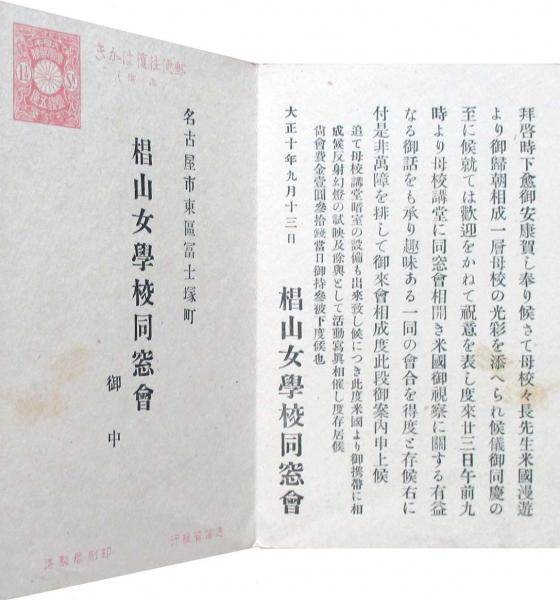 拜啓時下愈御安康賀し奉り候さて母校々長先生米國漫遊
より御歸朝相成一層母校の光彩を添へられ候儀御同慶の
至に候就ては歡迎をかねて祝意を表し度來廿三日午前九
時より母校講堂に同窓會相開き米國御視察に關する有益
なる御話をも承り趣味ある一同の會合を得度と存候右に
付是非萬障を排して御來會相成度此段御案內申上候
追て母校講堂暗室の設備も出來致し候につき此度米國より御携帶に相
成候反射幻燈の試映及餘興として活動寫眞相催し度存居候
尙會費金壹圓參拾錢當日御持參被下度候也
大正十年九月十三日
椙山女學校同窓會
郵便往復はがき
名古屋市東區冨士塚町
椙山女學校同窓會
御中
印刷局製造